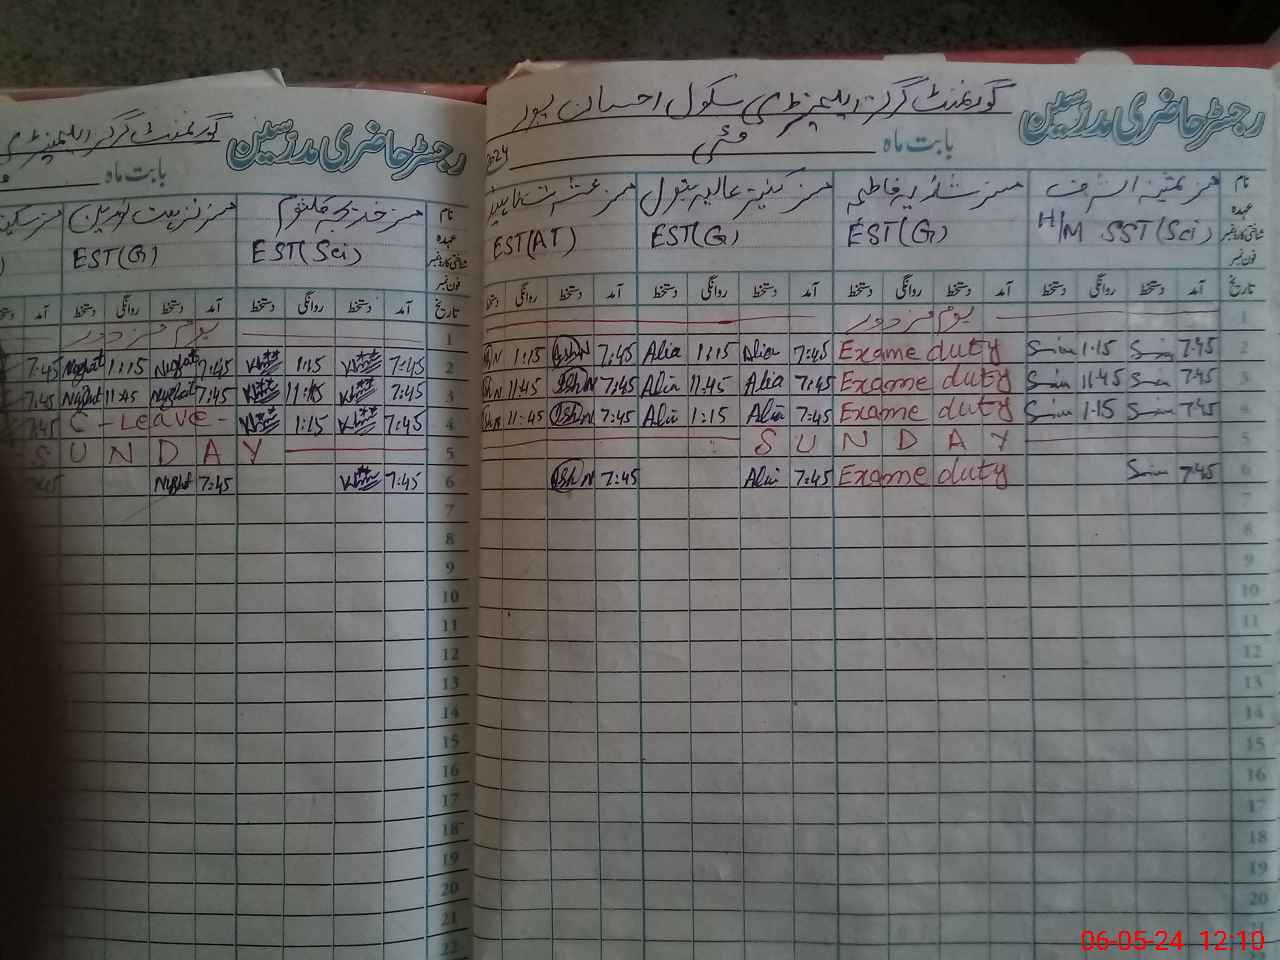 رجسٹر حاضری مدرسین گورنمنٹ گرلز ایلیمنٹری سکول احسان پور
بابت ماہ مئی 2024
نام مسز شازیہ فاطمہ مسز کنیز عالیہ بتول مسز عشرت ناہید
عہدہ H/M SST(Sci) EST(G) EST(G) EST(AT)
شناختی کارڈ نمبر
فون نمبر
تاریخ آمد دستخط روانگی دستخط آمد دستخط روانگی دستخط آمد دستخط روانگی دستخط آمد دستخط روانگی دستخط
1 یوم مزدور
2 7:45 1:15 Exame duty 7:45 Alia 1:15 Alia 7:45 IshN 1:15
3 7:45 11:45 Exame duty 7:45 Alia 11:45 Alia 7:45 IshN 11:45
4 7:45 1:15 Exame duty 7:45 Alia 1:15 Alia 7:45 IshN 11:45
5 SUNDAY
6 7:45 Exame duty 7:45 Alia 7:45 IshN
7
8
9
10
11
12
13
14
15
16
17
18
19
20
21
رجسٹر حاضری مدرسین گورنمنٹ گرلز ایلیمنٹری
بابت ماہ
نام مسز خدیجہ کلثوم مسز نزہت نورین
عہدہ EST(Sci) EST(G)
شناختی کارڈ نمبر
فون نمبر
تاریخ آمد دستخط روانگی دستخط آمد دستخط روانگی دستخط آمد
1 یوم مزدور
2 7:45 1:15 7:45 Nighat 1:15 Nighat 7:45
3 7:45 11:45 7:45 Nighat 11:45 Nighat 7:45
4 7:45 1:15 C-Leave- 7:45
5 SUNDAY
6 7:45 7:45 Nighat 7:45
7
8
9
10
11
12
13
14
15
16
17
18
19
20
21
22
06-05-24 12:10